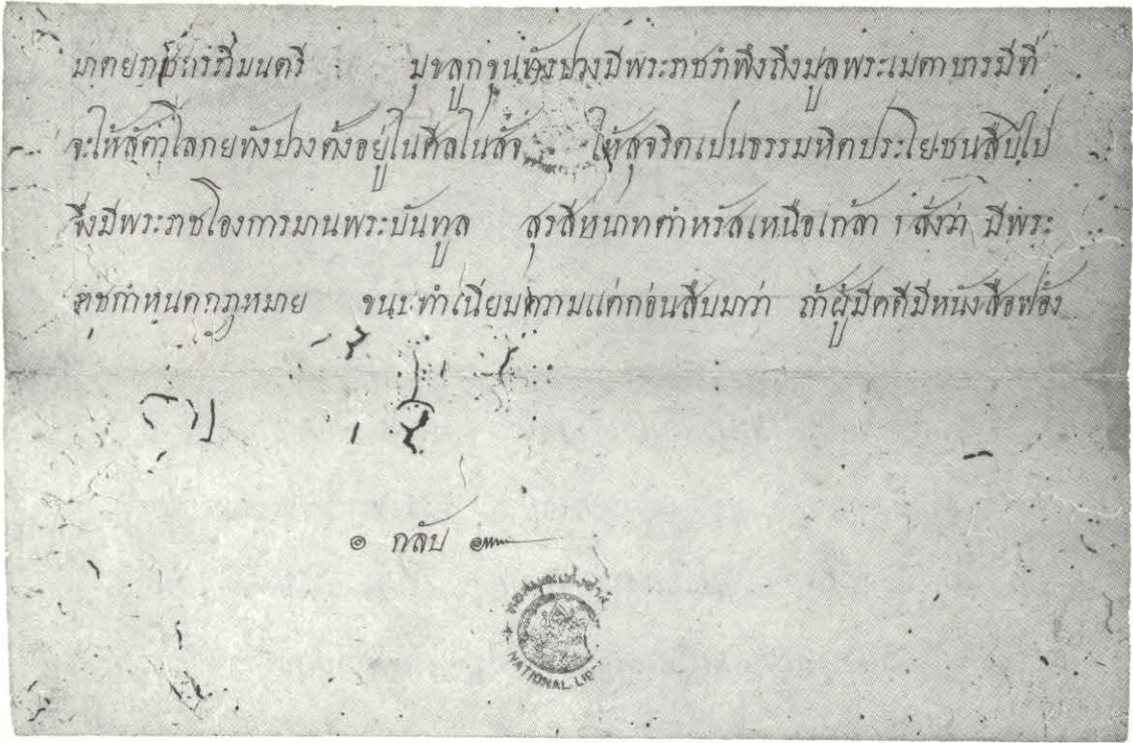 มาตยราชกระวีมนตรี มุขลูกขุนทังปวงมีพระราชรำพึงถึงมูลพระเมตาบารมีที่
จะให้สัตวโลกยทังปวงตั้งอยู่ในศีลในสัจ ให้สุจริตเป็นธรรมหิตประโยชนสืบไป
จึ่งมีพระราชโองการมานพระบันทูล สุรสีหนาทตำหรัสเหนือเกล้า ฯ สั่งว่า มีพระ
ราชกำหนดกฎหมาย ขนบทำเนียมความแต่ก่อนสืบมาว่า ถ้าผู้มีคดีมีหนังสือฟ้อง
๏ กลับ ๛
หอสมุดแห่งชาติ
NATIONAL